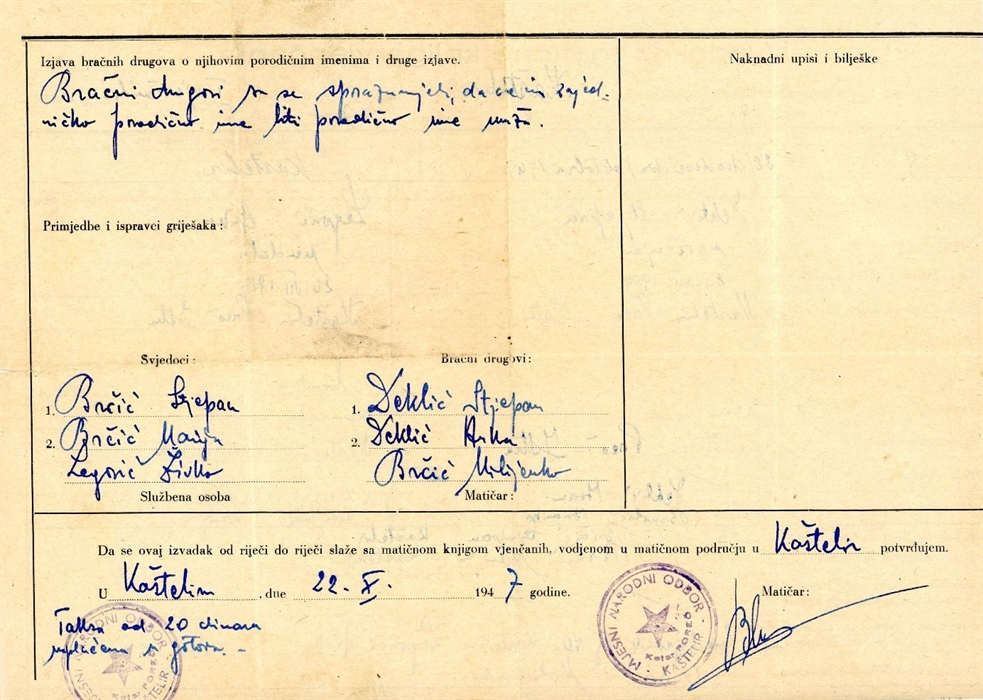 Izjava bračnih drugova o njihovim porodičnim imenima i druge izjave.
Bračni drugovi su se sporazumjeli, da će im zajed-
ničko porodično ime biti porodično ime muža.
Naknadni upisi i bilješke
Primjedbe i ispravci griješaka:
Svjedoci:
1. Brčić Stjepan
2. Brčić Marija
Legović Živko
Službena osoba
Bračni drugovi:
1. Deklić Stjepan
2. Deklić Anka
Brčić Milijenko
Matičar:
Da se ovaj izvadak od riječi do riječi slaže sa matičnom knjigom vjenčanih, vodjenom u matičnom području u Kaštelir potvrdjujem.
U Kašteliru, dne 22. X. 1947 godine.
Matičar:
Taksa od 20 dinara
uplaćena u gotovu. -
MJESNI NARODNI ODBOR - KAŠTELIR -
Kotar POREČ
MJESNI NARODNI ODBOR - KAŠTELIR
Kotar POREČ